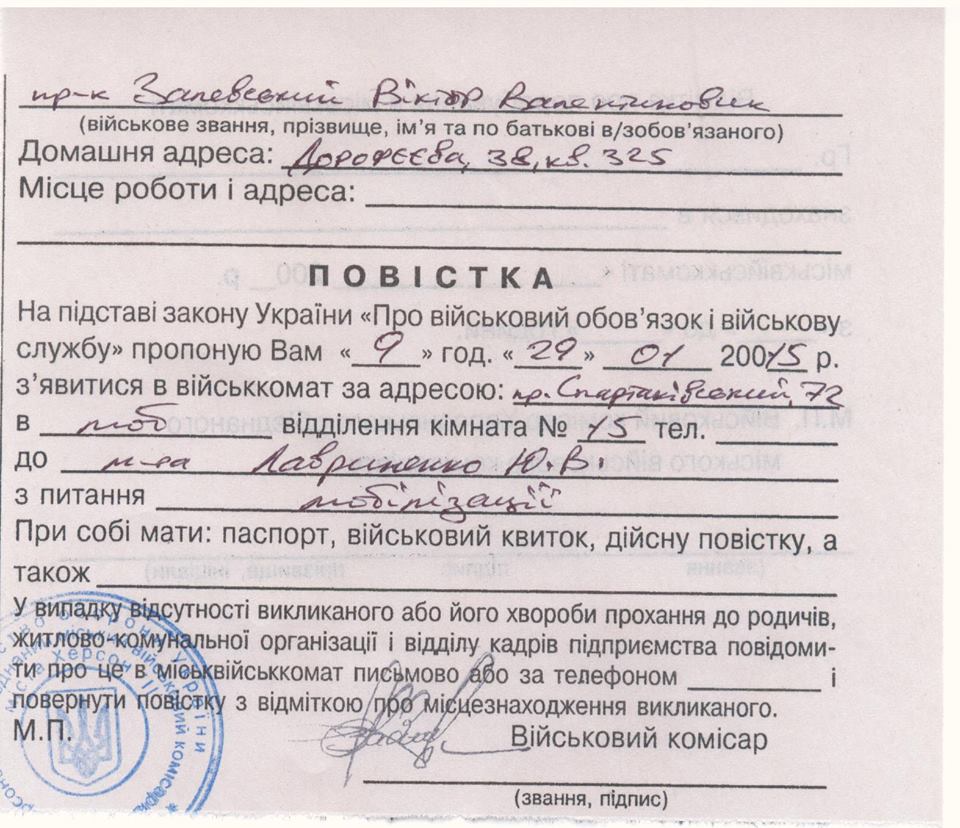 пр-к Залевський Віктор Валентинович
(військове звання, прізвище, ім'я та по батькові в/зобов'язаного)
Домашня адреса: Дорофєєва, 38, кв. 325
Місце роботи і адреса:
ПОВІСТКА
На підставі закону України «Про військовий обов'язок і військову
службу» пропоную Вам «9» год. «29» 01 20015 р.
з'явитися в військкомат за адресою: пр. Спартаківський, 72
в моб відділення кімната № 15 тел.
до м-ра Лавриненко Ю.В.
з питання мобілізації
При собі мати: паспорт, військовий квиток, дійсну повістку, а
також
У випадку відсутності викликаного або його хвороби прохання до родичів,
житлово-комунальної організації і відділу кадрів підприємства повідоми-
ти про це в міськвійськкомат письмово або за телефоном і
повернути повістку з відміткою про місцезнаходження викликаного.
М.П. Військовий комісар
(звання, підпис)